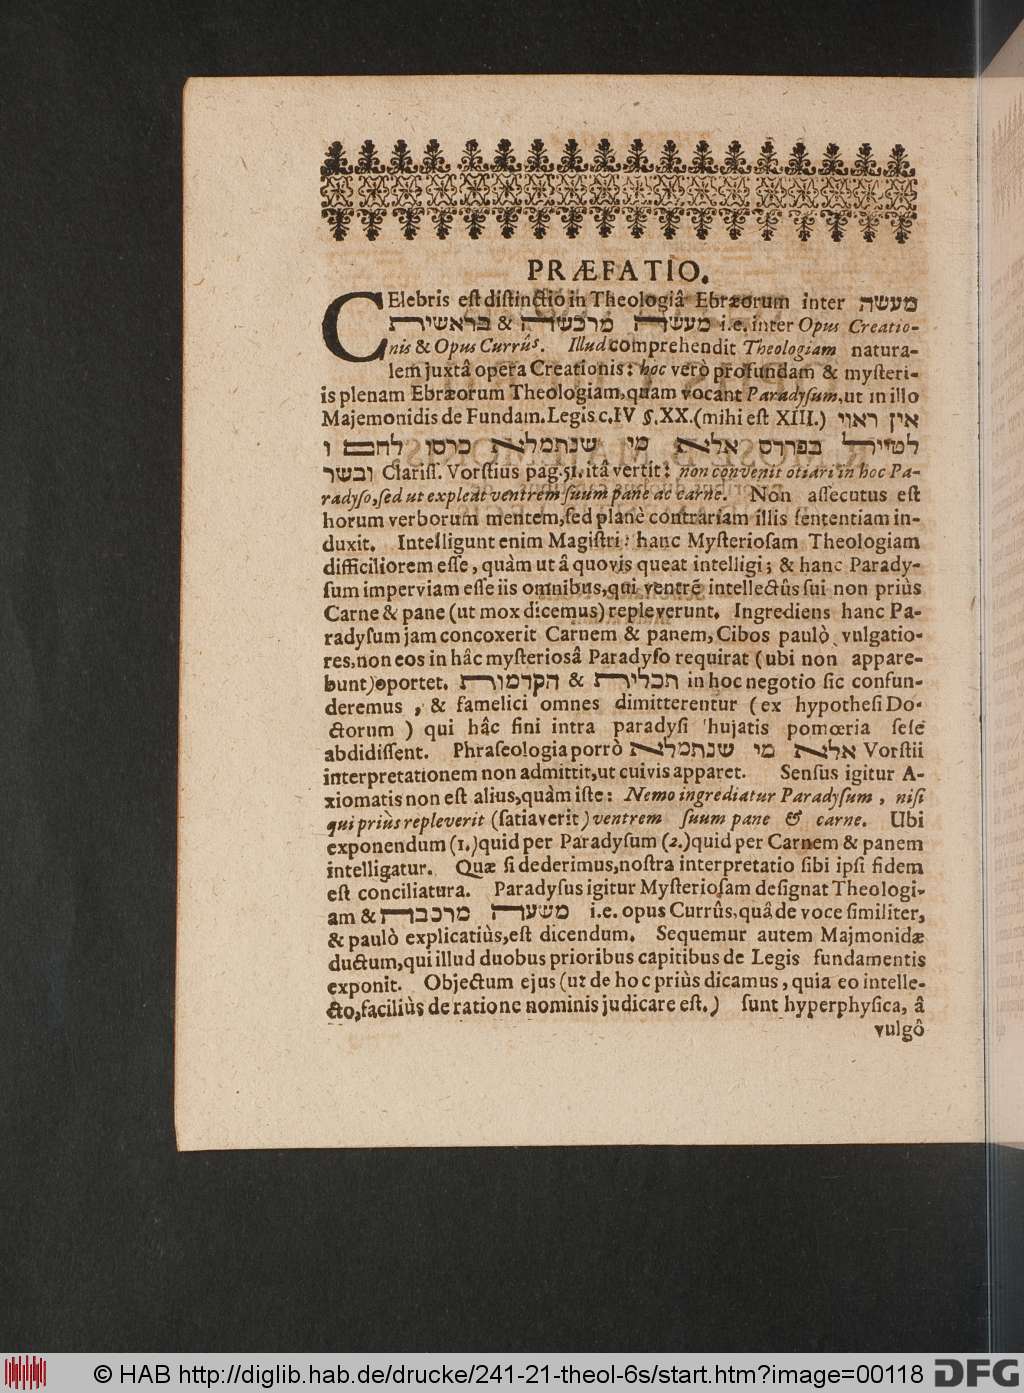 PRÆFATIO.
CElebris eſt diſtinctio in Theologiâ Ebræorum inter מעשה
בראשית & מעשה מרכשה i.e. inter Opus Creatio-
nis & Opus Currûs. Illud comprehendit Theologiam natura-
lem juxtâ opera Creationis: hoc verò profundam & myſteri-
is plenam Ebræorum Theologiam, quam vocant Paradyſum, ut in illo
Majemonidis de Fundam. Legis c. IV §. XX. (mihi eſt XIII.) אין ראוי
לטייל בפררס אלא מי שנתמלא כרסו לחם ו
ובשר Clariſſ. Vorſtius pag. 51. itâ vertit: non convenit otiari in hoc Pa-
radyſo, ſed ut expleat ventrem ſuum pane ac carne. Non aſſecutus eſt
horum verborum mentem, ſed planè contrariam illis ſententiam in-
duxit. Intelligunt enim Magiſtri: hanc Myſterioſam Theologiam
difficiliorem eſſe, quàm ut â quovis queat intelligi; & hanc Parady-
ſum imperviam eſſe iis omnibus, qui ventrẽ intellectûs ſui non priùs
Carne & pane (ut mox dicemus) repleverunt. Ingrediens hanc Pa-
radyſum jam concoxerit Carnem & panem, Cibos paulò vulgatio-
res, non eos in hâc myſteriosâ Paradyſo requirat (ubi non appare-
bunt) oportet. הקדמות & תכלית in hoc negotio ſic confun-
deremus, & famelici omnes dimitterentur (ex hypotheſi Do-
ctorum) qui hâc fini intra paradyſi hujatis pomœria ſeſe
abdidiſſent. Phraſeologia porrò אלא מי שנתמלא Vorſtii
interpretationem non admittit, ut cuivis apparet. Senſus igitur A-
xiomatis non eſt alius, quàm iſte: Nemo ingrediatur Paradyſum, niſi
qui priùs repleverit (ſatiaverit) ventrem ſuum pane & carne. Ubi
exponendum (1.) quid per Paradyſum (2.) quid per Carnem & panem
intelligatur. Quæ ſi dederimus, noſtra interpretatio ſibi ipſi fidem
eſt conciliatura. Paradyſus igitur Myſterioſam deſignat Theologi-
am & משעה מרכבה i.e. opus Currûs, quâ de voce ſimiliter,
& paulò explicatiùs, eſt dicendum. Sequemur autem Majmonidæ
ductum, qui illud duobus prioribus capitibus de Legis fundamentis
exponit. Objectum ejus (ut de hoc priùs dicamus, quia eo intelle-
cto, faciliùs de ratione nominis judicare eſt.) ſunt hyperphyſica, â
vulgô
© HAB http://diglib.hab.de/drucke/241-21-theol-6s/start.htm?image=00118
DFG